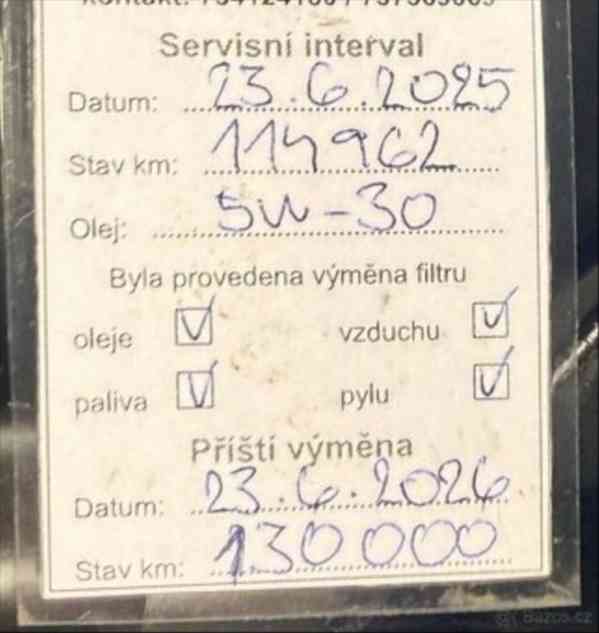 Servisní interval
Datum: 23.6.2025
Stav km: 114962
Olej: 5W-30
Byla provedena výměna filtru
oleje V vzduchu V
paliva V pylu V
Příští výměna
Datum: 23.6.2026
Stav km: 130000
bazos.cz